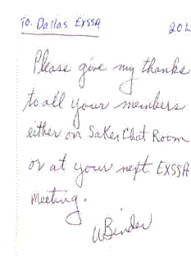 To. Dallas EXSSA
20L
Please give my thanks
to all your members
either on Sakes Chat Room
or at your next EXSSA
meeting.
WBinder